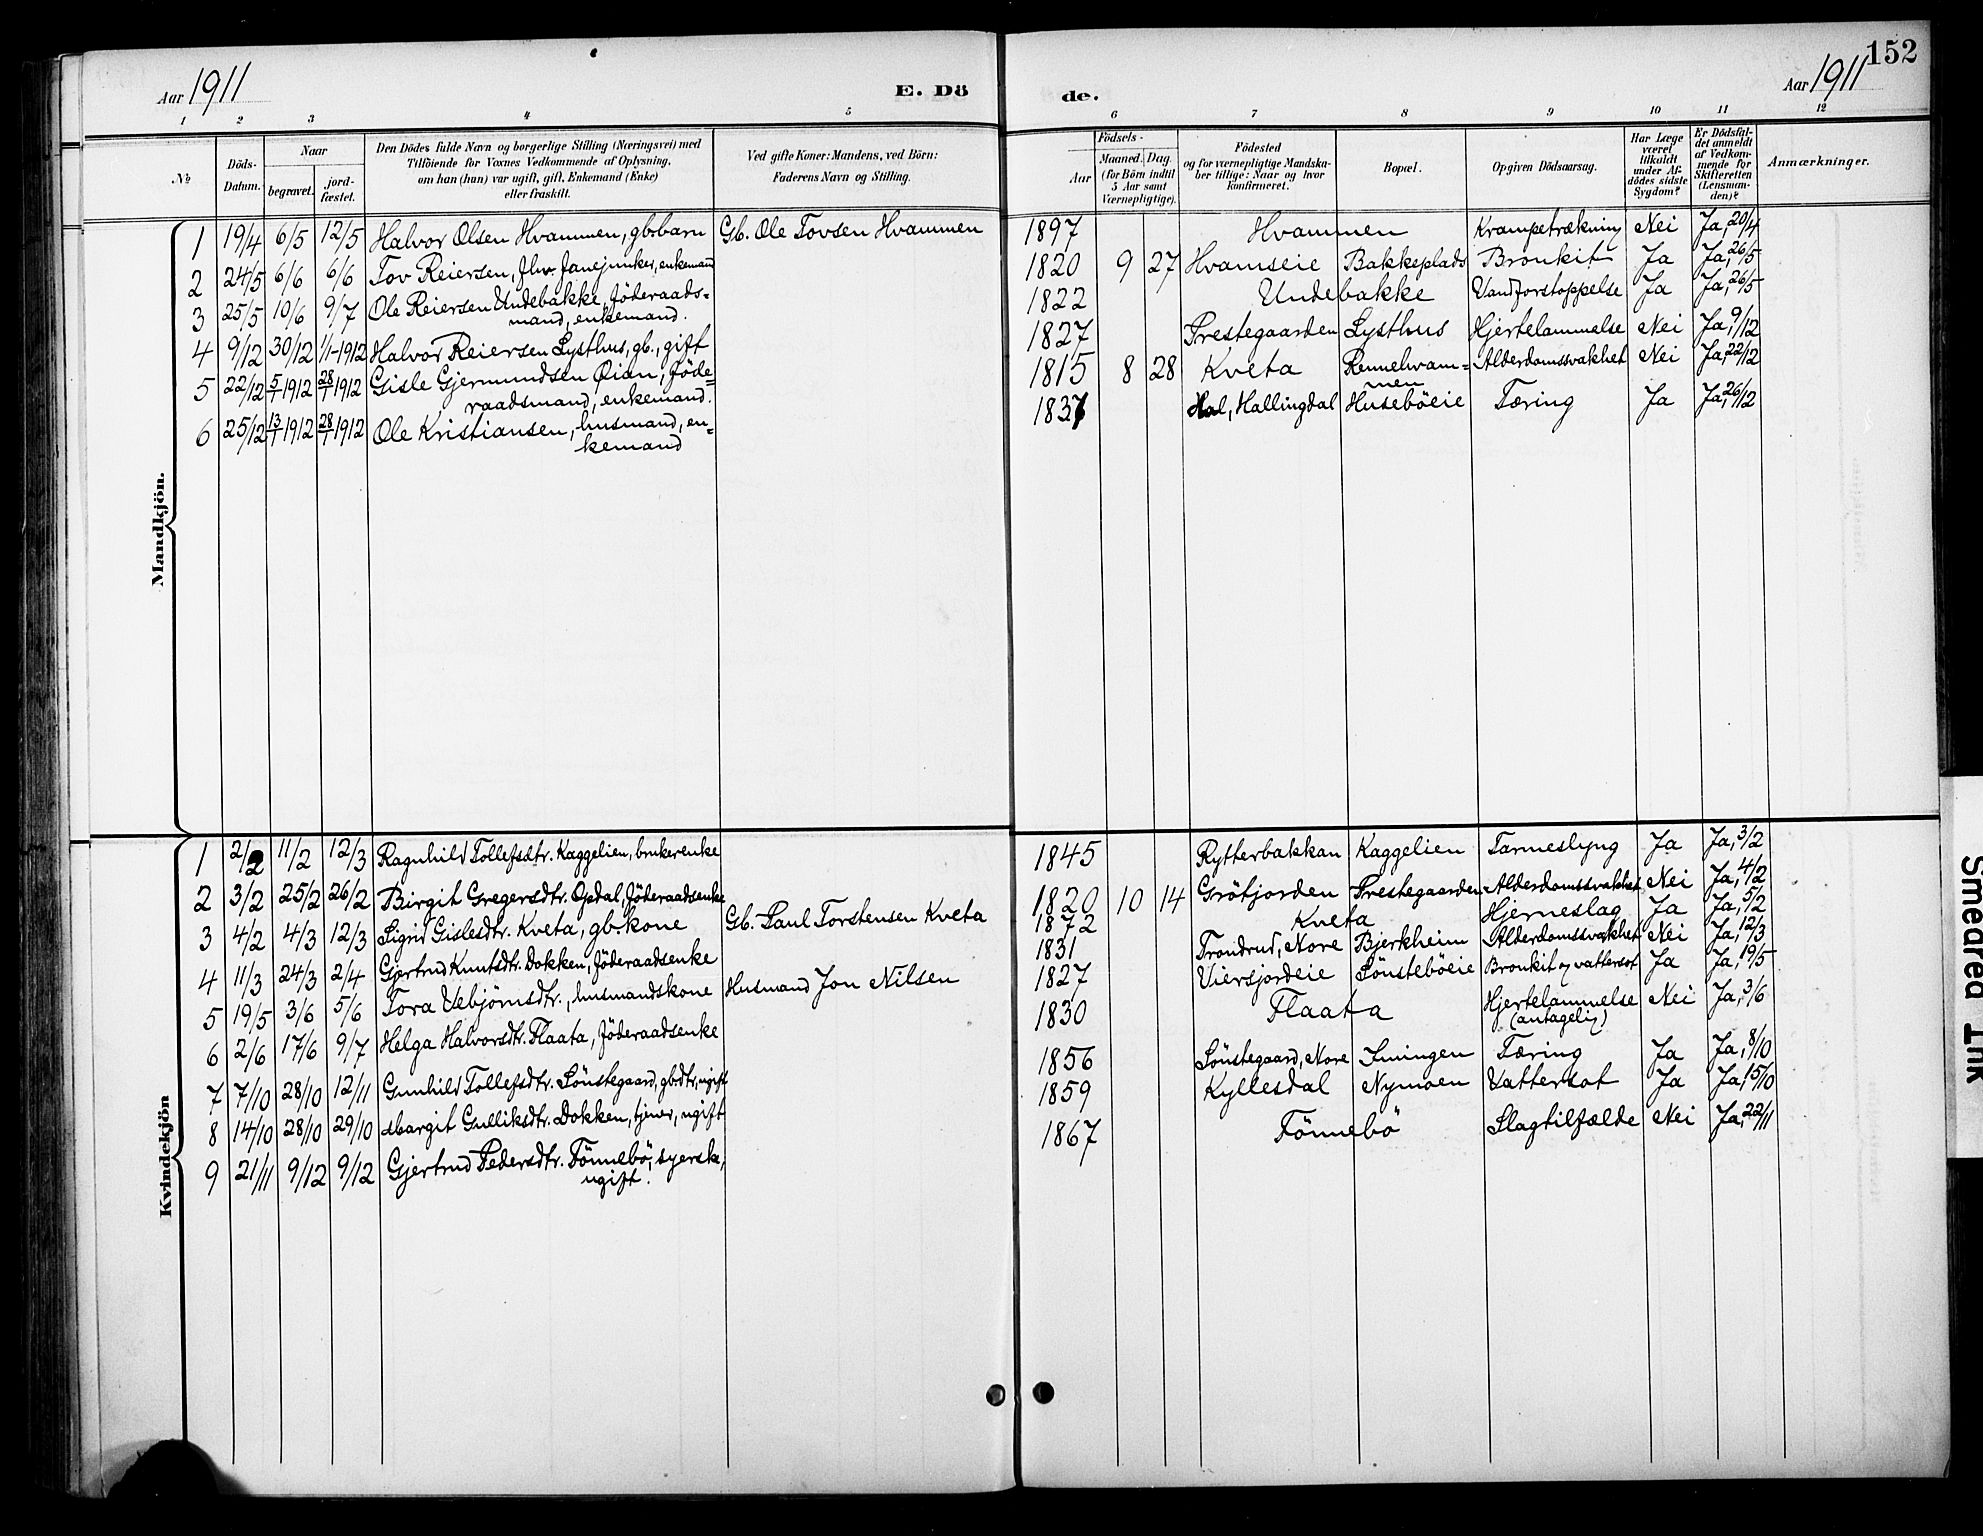 152
Aar 1911
E. Dö
de.
Aar 1911
1 2 3 4 5 6 7 8 9 10 11 12
№
Döds-Datum.
Naar
begravet.
jord-fæstet.
Den Dödes fulde Navn og borgerlige Stilling (Næringsvei) med
Tilföiende for Voxnes Vedkommende af Oplysning,
om han (hun) var ugift, gift, Enkemand (Enke)
eller fraskilt.
Ved gifte Koner: Mandens, ved Börn:
Faderens Navn og Stilling.
Födsels-
Aar
Maaned. Dag.
(for Börn indtil
5 Aar samt
Værnepligtige).
Födested
og for værnepligtige Mandska-
ber tillige: Naar og hvor
konfirmeret.
Bopæl.
Opgiven Dödsaarsag.
Har Læge
været
tilkaldt
under Af-
dödes sidste
Sygdom?
Er Dödsfal-
det anmeldt
af Vedkom-
mende for
Skifteretten
(Lensman-
den)?
Anmærkninger.
Mandkjön.
1 19/4 6/5 12/5 Halvor Olsen Hvammen, gbrbarn Gb. Ole Tovsen Hvammen 1897 Hvammen Krampetrækning Nei Ja, 20/4
2 24/5 6/6 6/6 Tov Reiersen, fhv. Janejunker, enkemand 1820 9 27 Hvamseie Bakkeplads Bronkit Ja Ja, 26/5
3 25/5 10/6 9/7 Ole Reiersen Undebakke, föderaads-
mand, enkemand. 1822 Undebakke Vandforstoppelse Ja Ja, 26/5
4 9/12 30/12 1/1-1912 Halvor Reiersen Lysthus, gb., gift 1827 Prestegaarden Lysthus Hjertelammelse Nei Ja, 9/12
5 22/12 5/1 1912 28/1 1912 Gisle Gjermundsen Öian, föde-
raadsmand, enkemand. 1815 8 28 Kveta Rennehvam-
men Alderdomssvakhet Nei Ja, 22/12
6 25/12 13/1 1912 28/1 1912 Ole Kristiansen, husmand, en-
kemand 1837 Hol, Hallingdal Huseböeie Tæring Ja Ja, 26/12
Kvindekjön
1 2/2 11/2 12/3 Ragnhild Tollefsdtr. Kaggelien, brukerenke 1845 Rytterbakkan Kaggelien Tarmeslyng Ja Ja, 3/2
2 3/2 25/2 26/2 Birgit Gregersdtr. Opdal, föderaadsenke 1820 10 14 Grötjorden Prestegaarden Alderdomssvakhet Nei Ja, 4/2
3 4/2 4/3 12/3 Sigrid Gislesdtr. Kveta, gb.kone Gb. Paul Torstensen Kveta 1872 Kveta Hjerneslag Ja Ja, 5/2
4 11/3 24/3 2/4 Gjertrud Knutsdtr. Dokken, föderaadsenke 1831 Trondrud, Nore Bjerkheim Alderdomssvakhet Nei Ja, 12/3
5 19/5 3/6 5/6 Tora Vebjörnsdtr., husmandskone Husmand Jon Nilsen 1827 Viersjordeie Sönsteböeie Bronkit og vattersot Ja Ja, 19/5
6 2/6 17/6 9/7 Helga Halvorsdtr. Flaata, föderaadsenke 1830 Flaata Hjertelammelse
(antagelig) Nei Ja, 3/6
7 7/10 28/10 12/11 Gunhild Tollefsdtr. Sönstegaard, gbrdtr, ugift 1856 Sönstegaard, Nore Imingen Tæring Ja Ja, 8/10
8 14/10 28/10 29/10 Margit Gulliksdtr. Dokken, tjener, ugift 1859 Kyllesdal Nymoen Vattersot Ja Ja, 15/10
9 21/11 9/12 9/12 Gjertrud Pedersdtr. Tönnebö, syerske,
ugift. 1867 Tönnebö Slagtilfælde Nei Ja, 22/11
Smedrea Trur